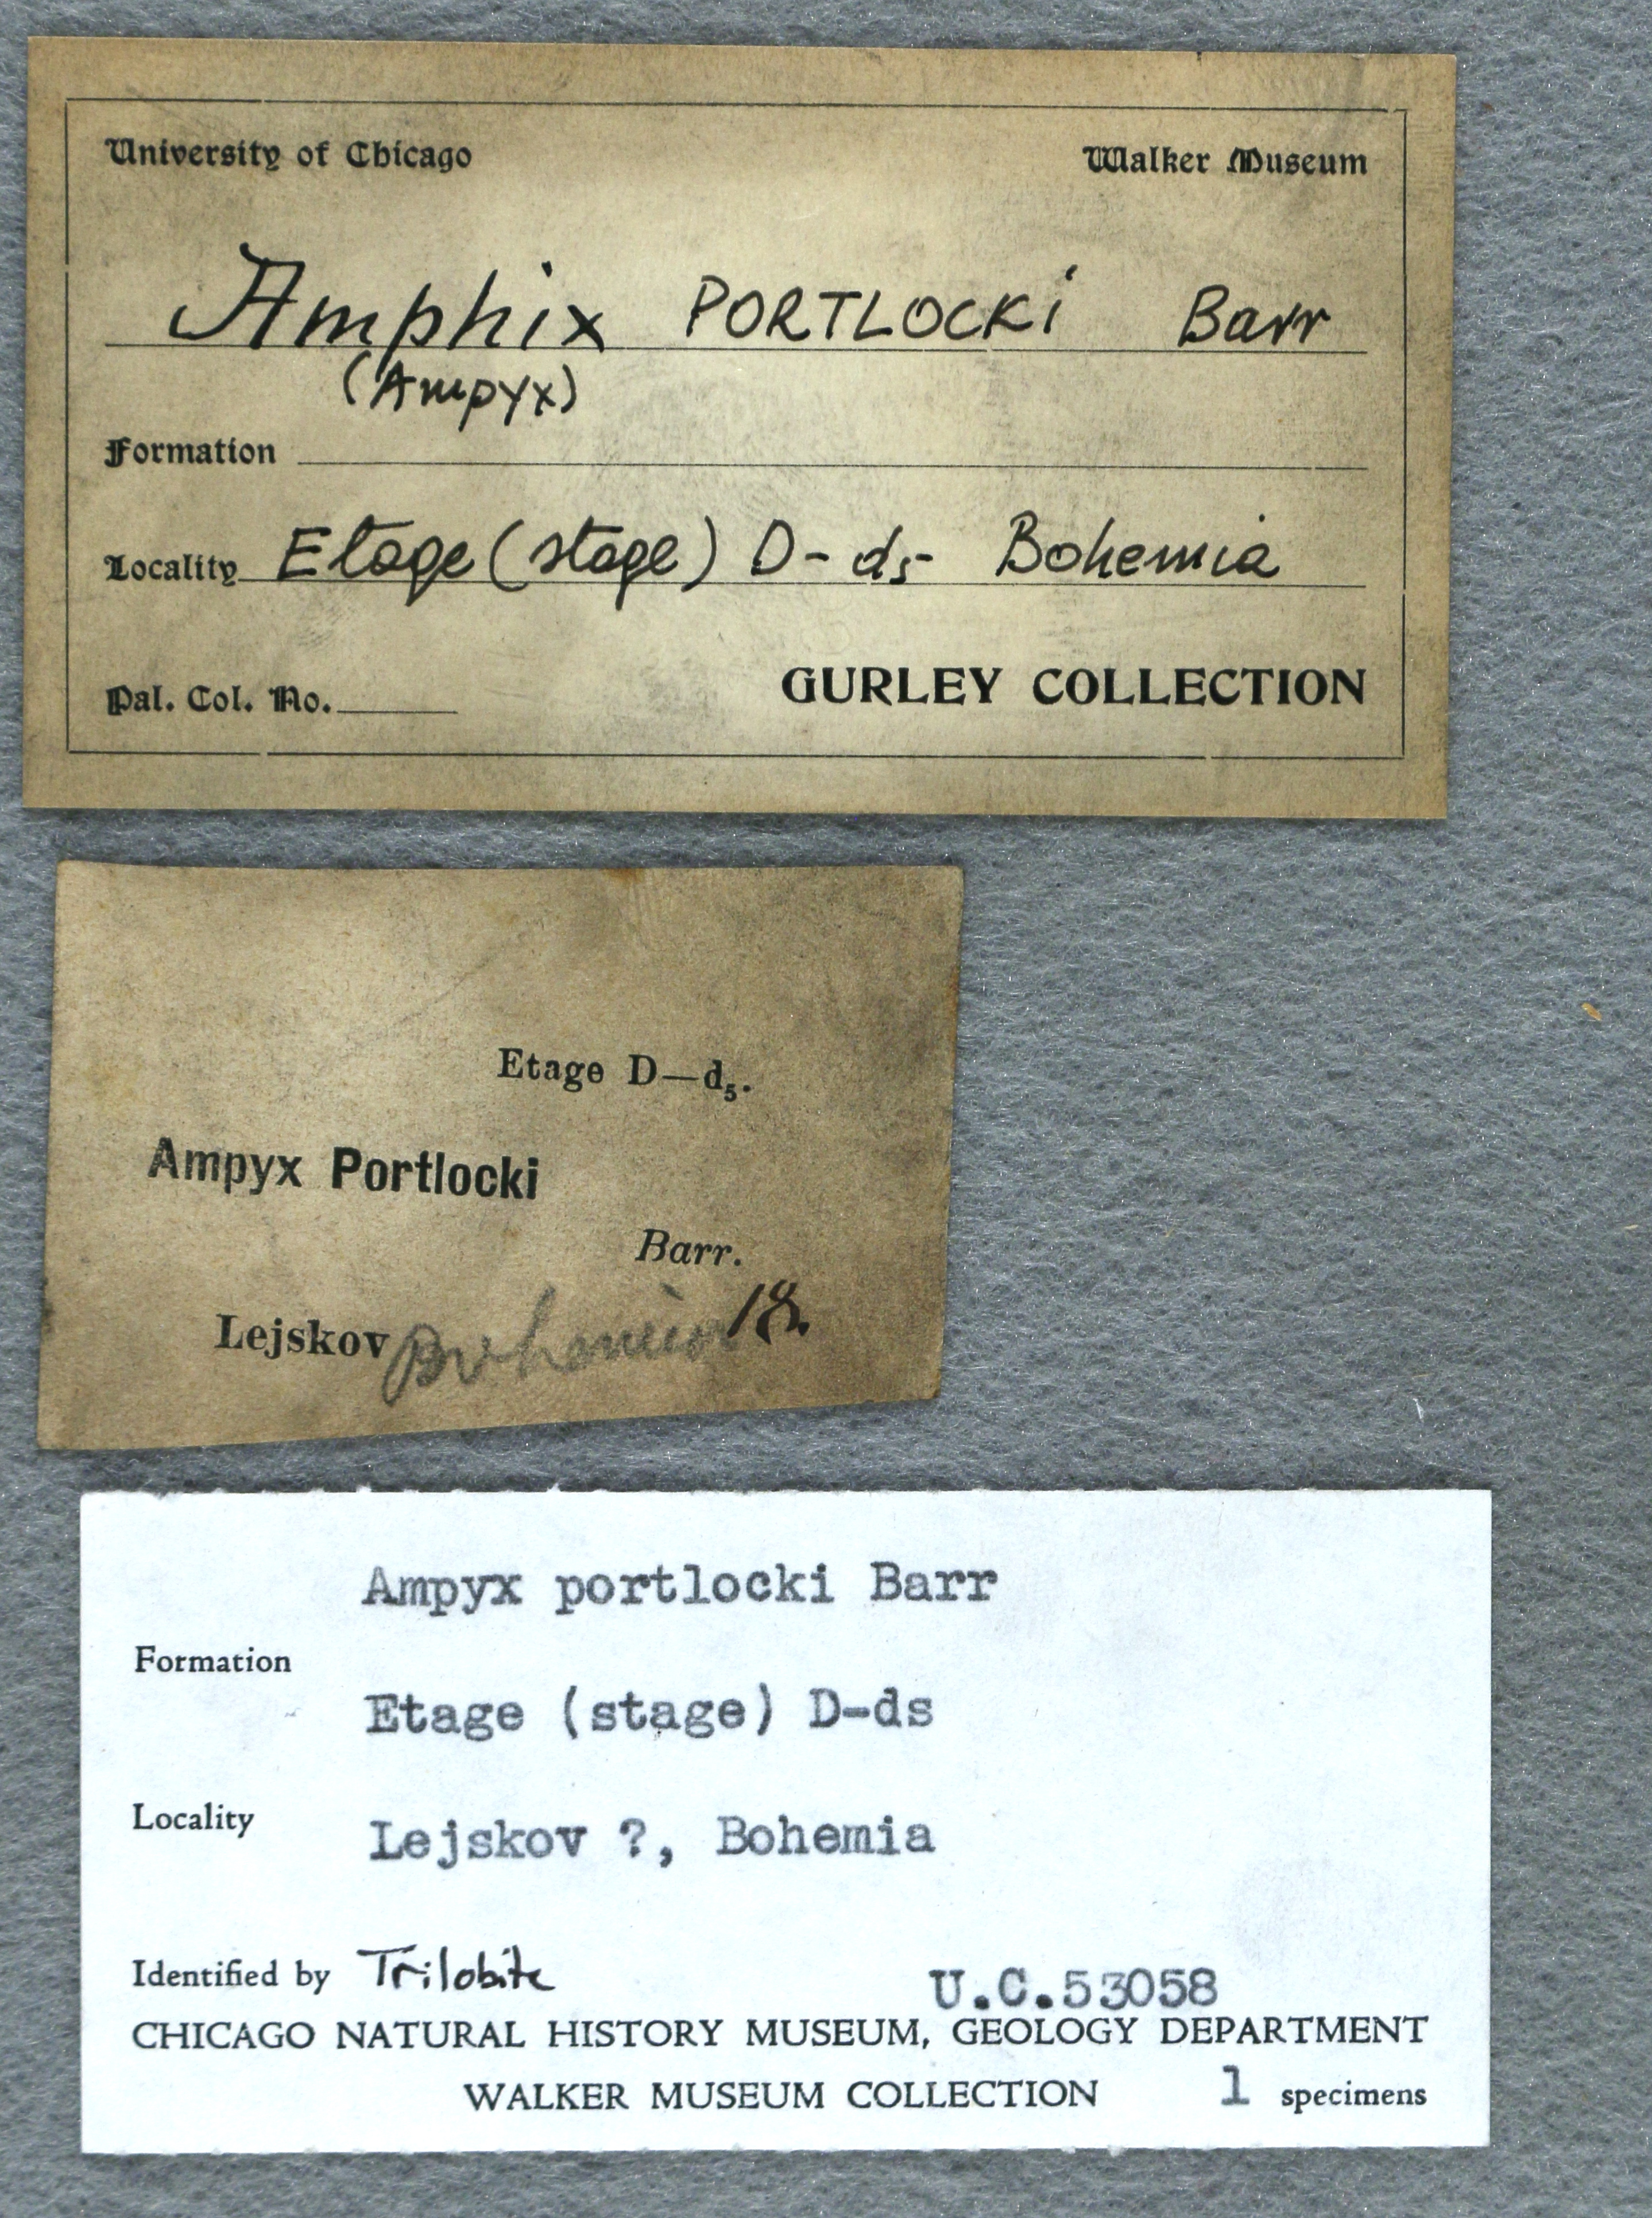 University of Chicago Walker Museum
Amphix PORTLOCKi Barr
(Ampyx)
Formation
Locality Etage (stage) D- d5- Bohemia
Pal. Col. No.
GURLEY COLLECTION
Etage D—d₅.
Ampyx Portlocki
Barr.
Lejskov Bohemia 18.
Ampyx portlocki Barr
Formation
Etage (stage) D-ds
Locality
Lejskov ?, Bohemia
Identified by Trilobite U.C.53058
CHICAGO NATURAL HISTORY MUSEUM, GEOLOGY DEPARTMENT
WALKER MUSEUM COLLECTION 1 specimens